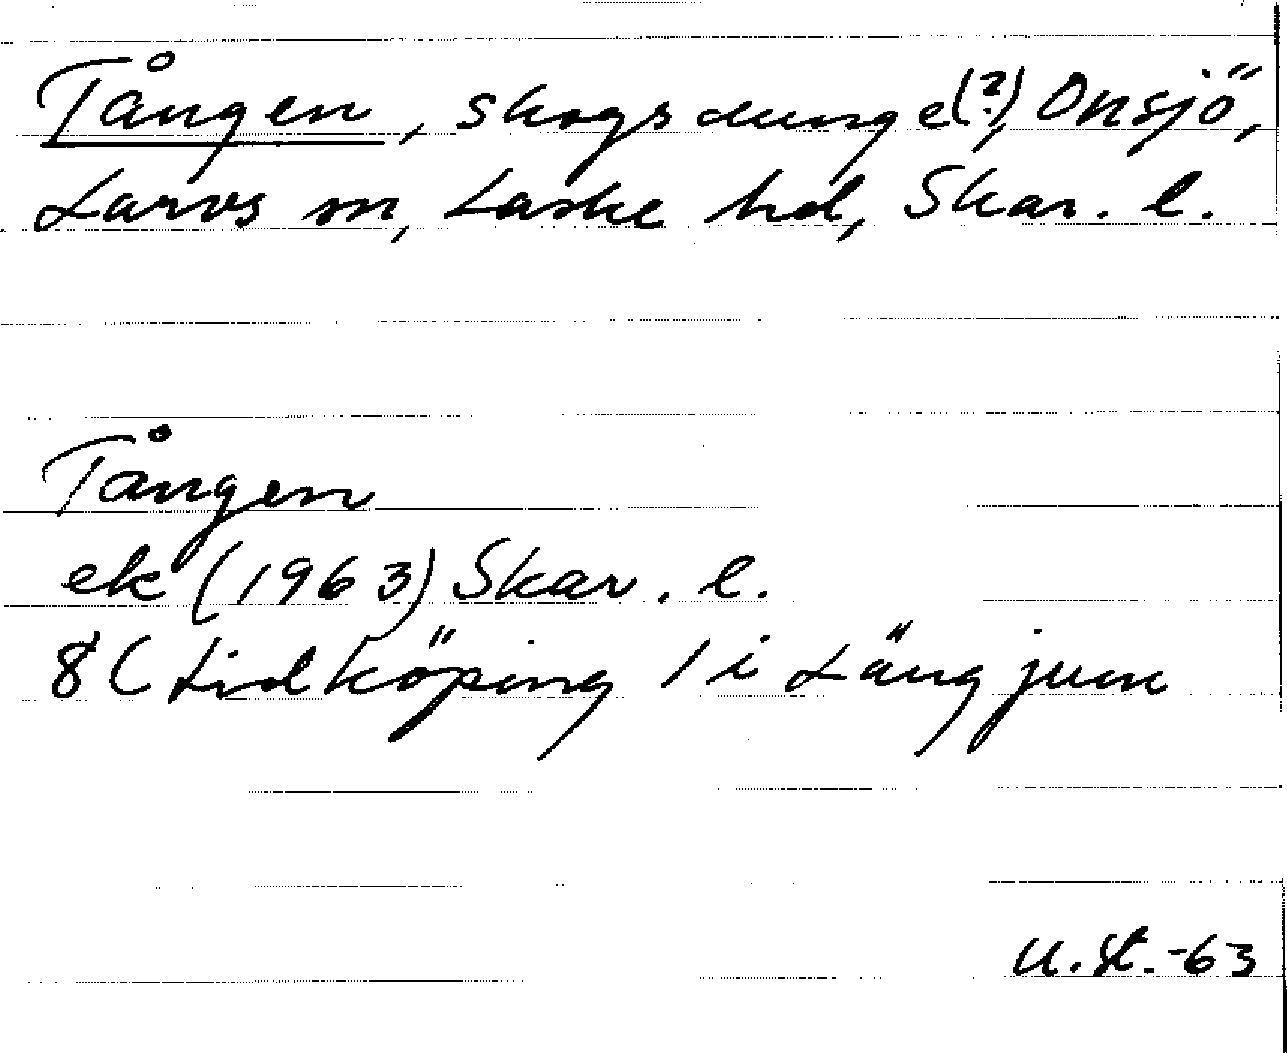 Tången, skogsdunge(?), Onsjö,
Larvs sn, Laske hd, Skar. l.
Tången
ek (1963) Skar. l.
8C Lidköping / i Längjum
U. St. -63